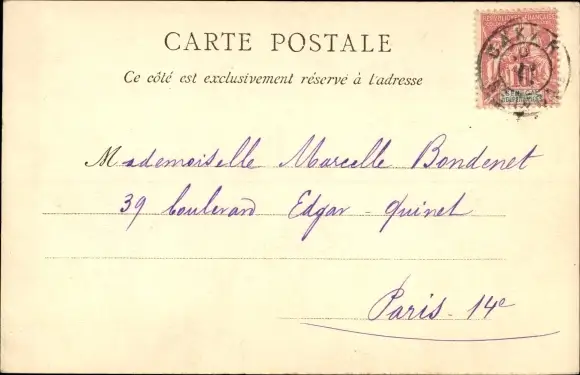 RÉPUBLIQUE FRANÇAISE
CARTE POSTALE
DAKAR
Ce côté est exclusivement réservé à l'adresse
Mademoiselle Marcelle Bondenet
39 boulevard Edgar-Quinet
Paris-14e